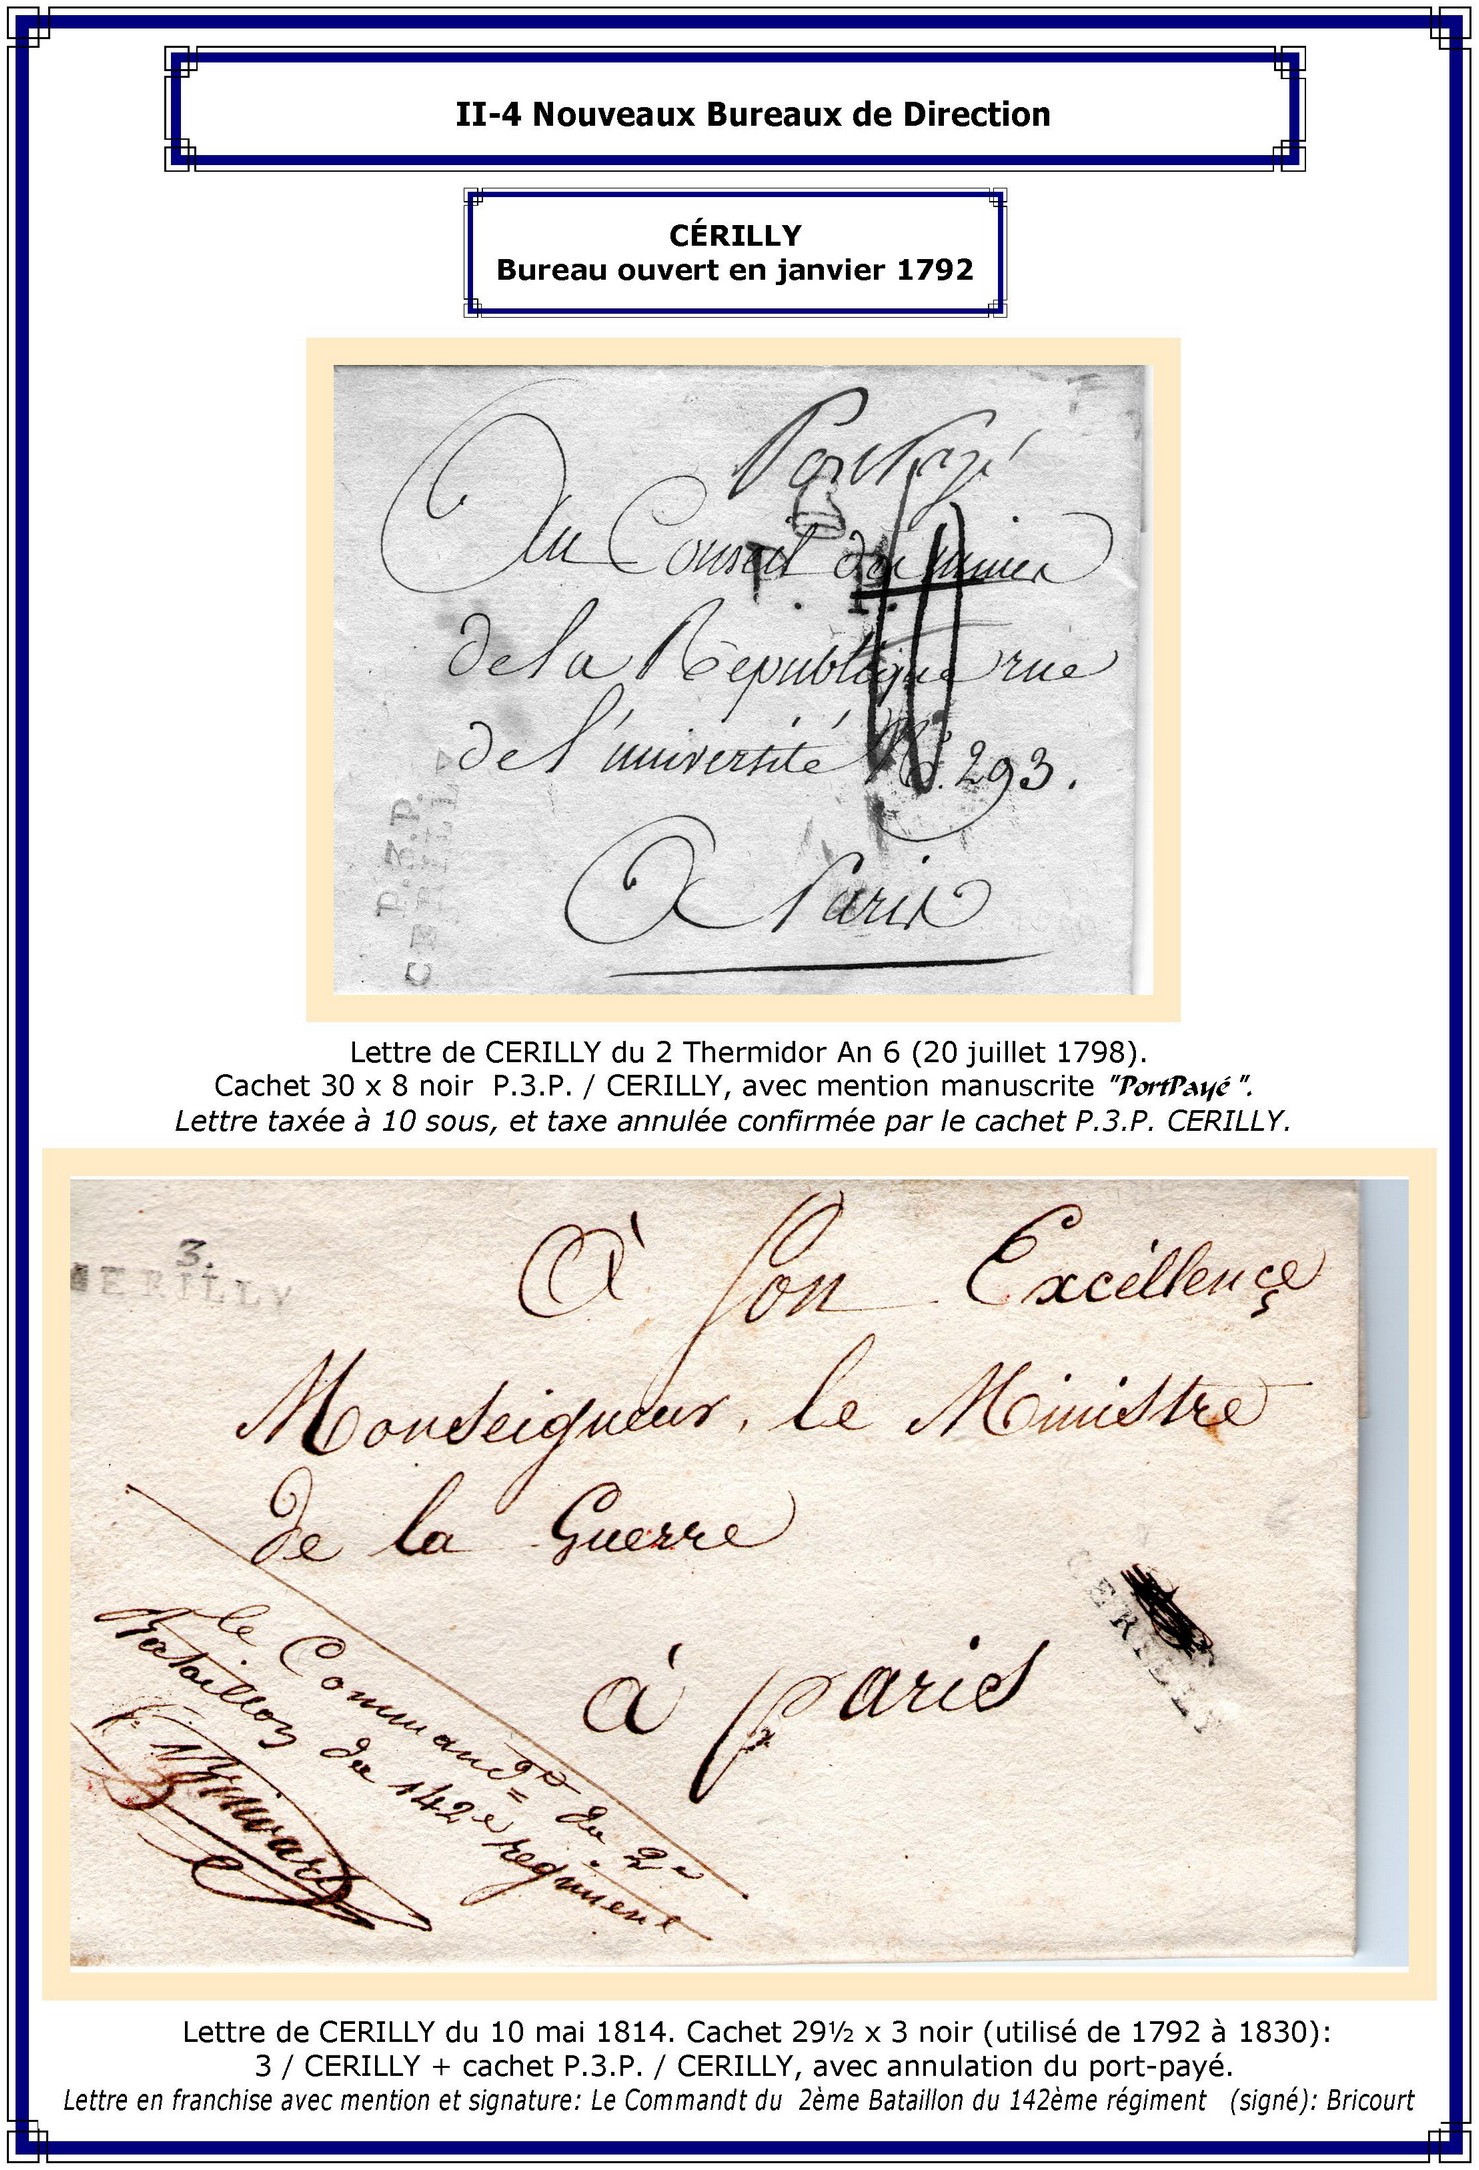 II-4 Nouveaux Bureaux de Direction
CÉRILLY
Bureau ouvert en janvier 1792
Port Payé
Au Conseil des mines
P. P.
de la République rue
de l'université N.º 293.
P.3.P.
CERILLY
A Paris
Lettre de CERILLY du 2 Thermidor An 6 (20 juillet 1798).
Cachet 30 x 8 noir P.3.P. / CERILLY, avec mention manuscrite "PortPayé ".
Lettre taxée à 10 sous, et taxe annulée confirmée par le cachet P.3.P. CERILLY.
3.
CERILLY
À Son Excéllençe
Monseigneur, le Ministre
de la Guerre
CERILLY
à paris
le Command. du 2e
Bataillon du 142e regiment
Lettre de CERILLY du 10 mai 1814. Cachet 29½ x 3 noir (utilisé de 1792 à 1830):
3 / CERILLY + cachet P.3.P. / CERILLY, avec annulation du port-payé.
Lettre en franchise avec mention et signature: Le Commandt du 2ème Bataillon du 142ème régiment (signé): Bricourt